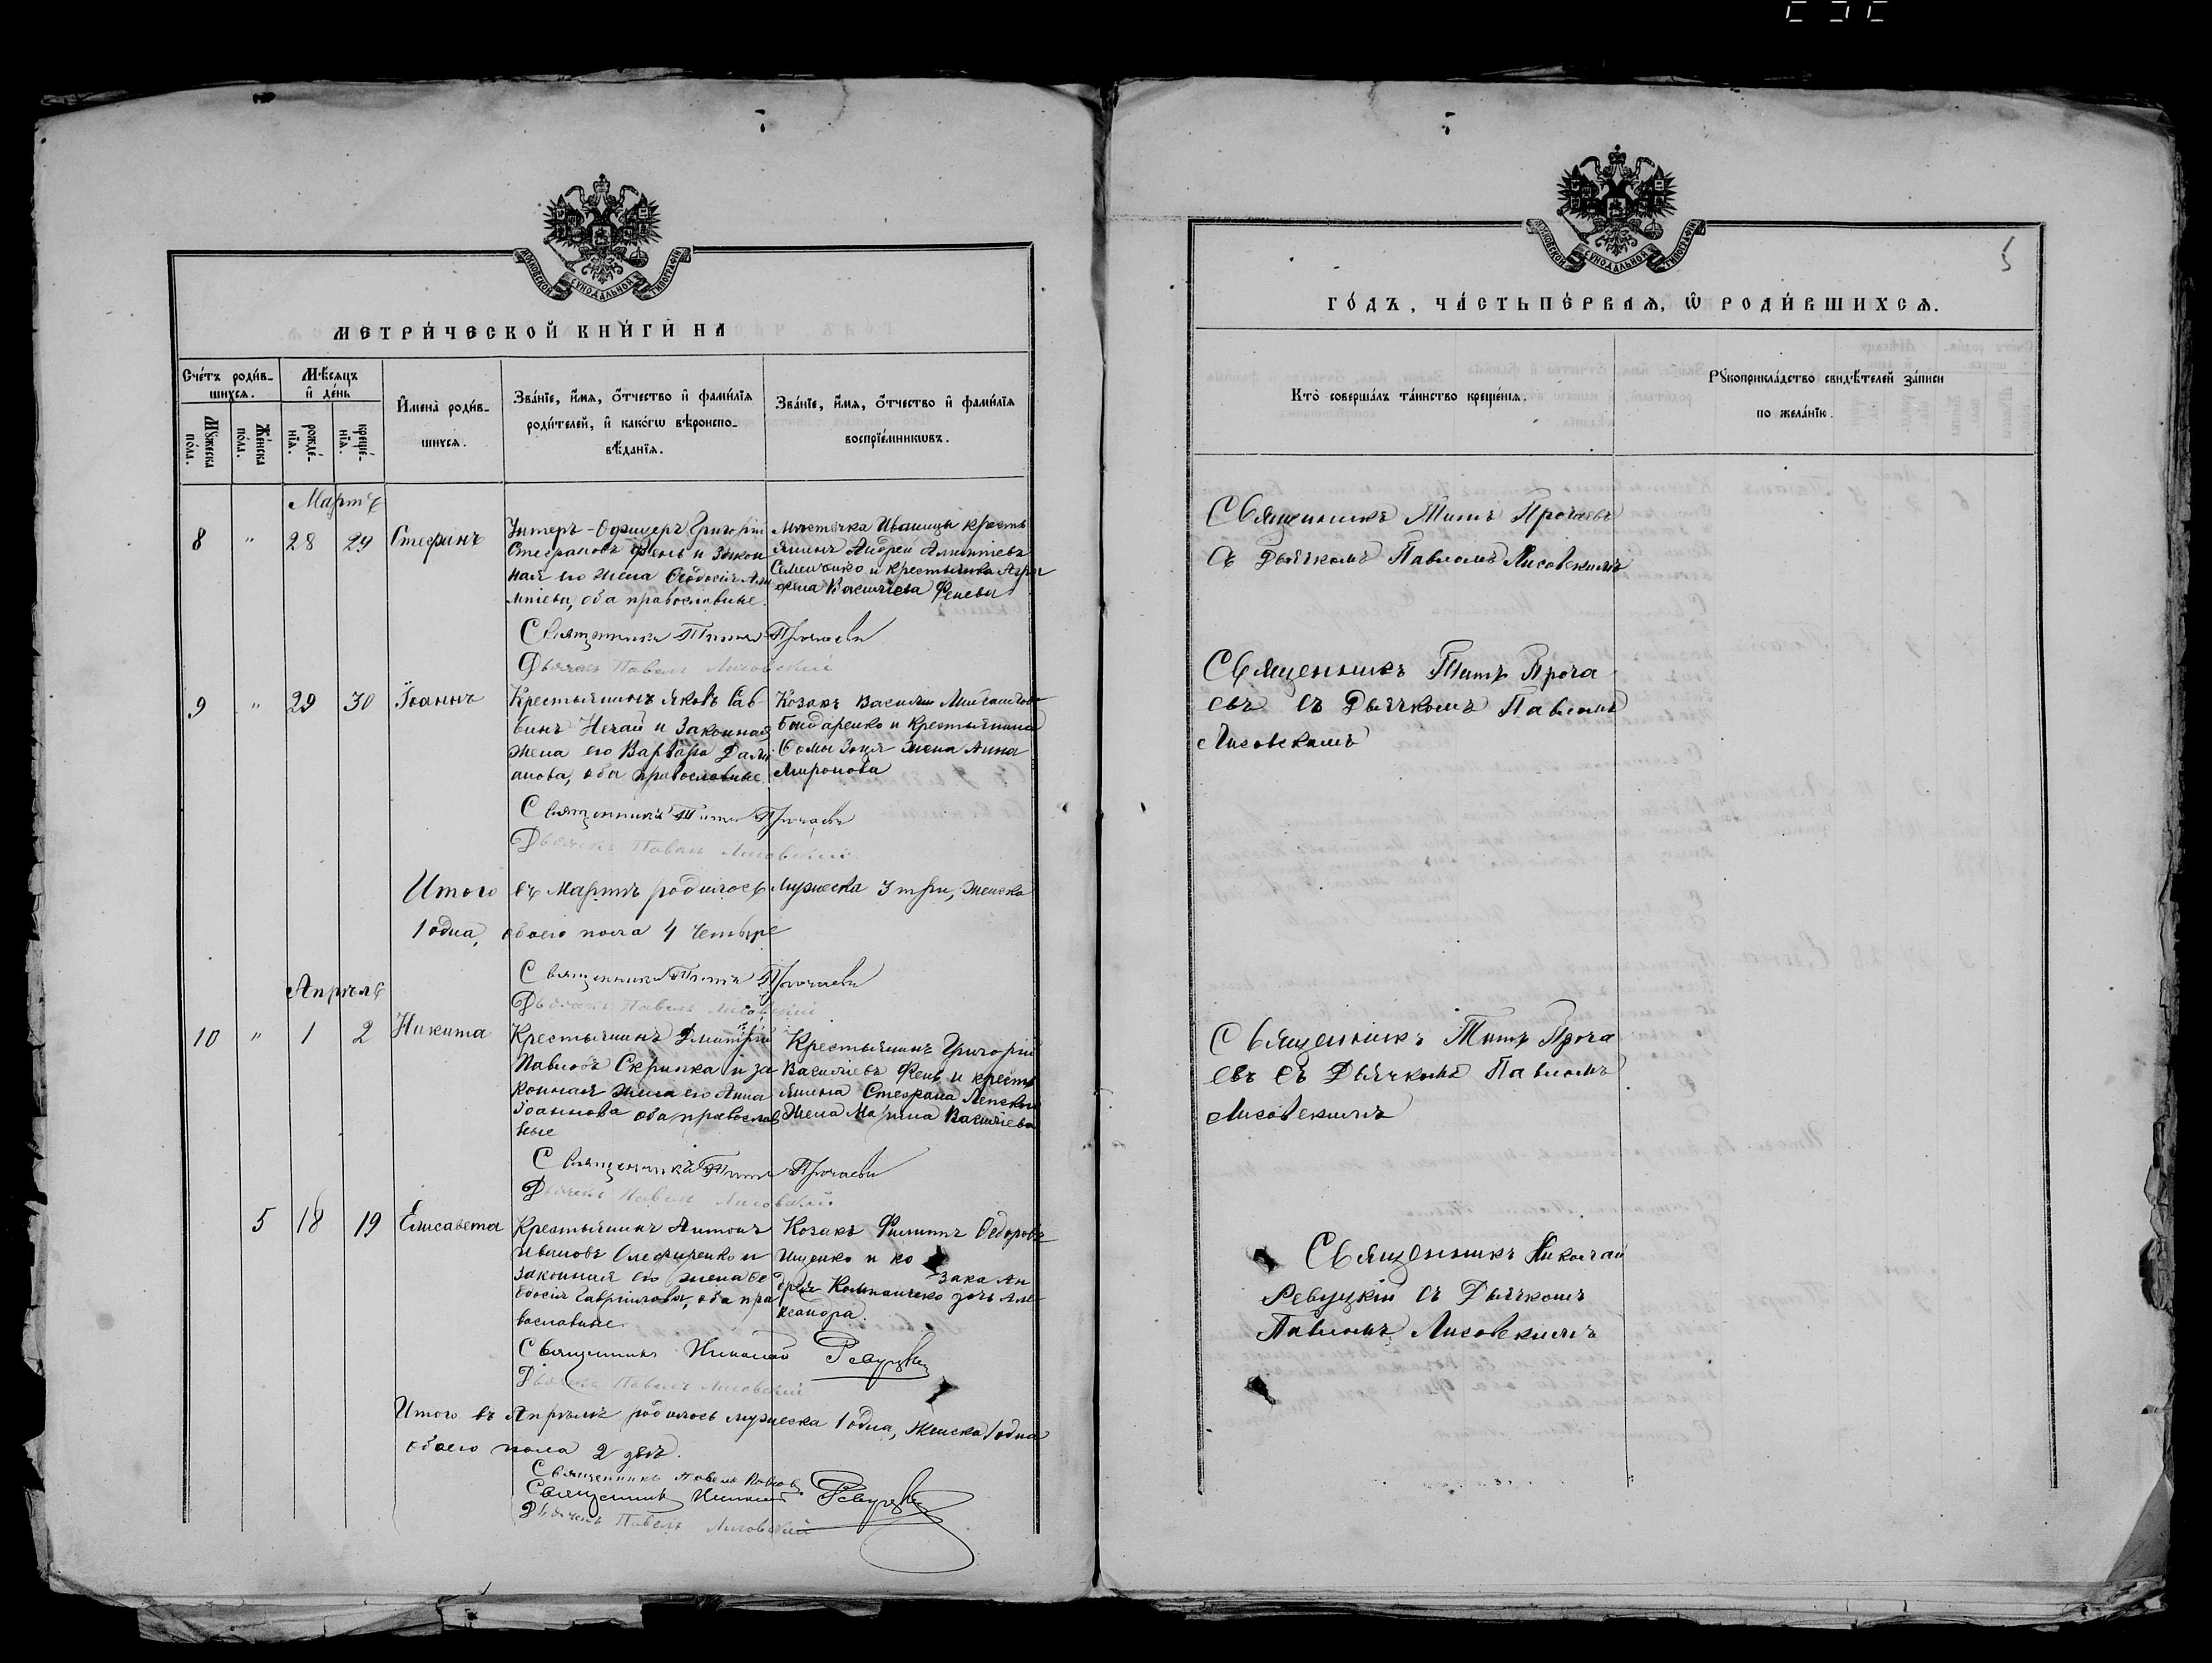 МОСКОВСКОЙ СѴНОДАЛЬНОЙ ТИПОГРАФІИ
МЕТРИ́ЧЕСКОЙ КНИ́ГИ НА
Сче́тъ роди́в-
шихсѧ.
Мѣ́сѧцъ
и҆ де́нь
Мꙋ́жеска по́ла.
Же́нска по́ла.
рожде́-нїѧ.
креще́-нїѧ.
И҆мена̀ роди́в-
шихсѧ.
Зва́нїе, и҆́мѧ, ѻ҆́тчество и҆ фами́лїѧ
роди́телей, и҆ како́гѡ вѣроиспо-
вѣ́данїѧ.
Зва́нїе, и҆́мѧ, ѻ҆́тчество и҆ фами́лїѧ
воспрїе́мникѡвъ.
Мартъ
8 " 28 29 Стефанъ
Унтеръ-Офицеръ Григорій
Стефановъ Фень и закон
ная его жена Ѳеодосія
оба православные.
Мѣстечка Иваницы кресть
янинъ Андрей
Семенченко и крестьянка Агри
фена Васильева Фенева
Священникъ Титъ Прочаевъ
Дьячекъ Павелъ Лисовский
9 " 29 30 Іоаннъ
Крестьянинъ Яковъ Сав
винъ Нечай и законная
жена его Варвара Дами
анова, оба православные
Козакъ Василій
Бондаренко и крестьянина
Ѳомы Зоця жена Анна
Миронова
Священникъ Титъ Прочаевъ
Дьячекъ Павелъ Лисовский
Итого въ Мартѣ родилось мужеска 3 три, женска
1 одна, обоего пола 4 четыре
Священникъ Титъ Прочаевъ
Дьячекъ Павелъ Лисовский
Апрѣль
10 " 1 2 Никита
Крестьянинъ Дмитрій
Павловъ Скрипка и за
конная жена его Анна
Іоаннова оба православ
ные
Крестьянинъ Григорій
Васильевъ Фень и кресть
янина Стефана
жена Марина Васильева
Священникъ Титъ Прочаевъ
Дьячекъ Павелъ Лисовский
5 18 19 Елисавета
Крестьянинъ Антонъ
Ивановъ и
законная его жена Ѳе
одосія Гавріилова, оба пра
вославные.
Козакъ Филиппъ Ѳедоровъ
Ищенко и ко
зака Ан
дрея дочь Але
ксандра.
Священникъ Николай Ревуцкій
Дьячекъ Павелъ Лисовский
Итого въ Апрѣлѣ родилось мужеска 1 одна, женска 1 одна
обоего пола 2 двѣ.
Священникъ Павелъ
Священникъ Николай Ревуцкій
Дьячекъ Павелъ Лисовский
МОСКОВСКОЙ СѴНОДАЛЬНОЙ ТИПОГРАФІИ
5
ГО́ДЪ, ЧА́СТЬ ПЕ́РВАѦ, Ѡ҆ РОДИ́ВШИХСѦ.
Кто̀ соверша́лъ та́инство креще́нїѧ.
Рꙋкоприкла́дство свидѣ́телей за́писи
по жела́нїю.
Священникъ Титъ Прочаевъ
съ Дьячкомъ Павломъ Лисовскимъ
Священникъ Титъ Проча
евъ съ Дьячкомъ Павломъ
Лисовскимъ
Священникъ Титъ Проча
евъ съ Дьячкомъ Павломъ
Лисовскимъ
Священникъ Николай
Ревуцкій съ Дьячкомъ
Павломъ Лисовскимъ